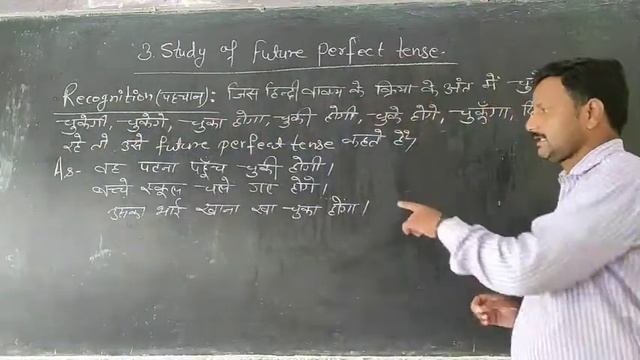 3. Study of Future perfect tense.
Recognition (पहचान): जिस हिन्दी वाक्य के क्रिया के अंत में
चुकेगी, चुकेगे, चुका होगा, चुकी होगी, चुके होगे, चुकूँगा,
रहे तो उसे future perfect tense कहते हैं।
As- वह पटना पहुँच चुकी होगी।
बच्चे स्कूल चले गए होंगे।
उसका भाई खाना खा चुका होगा।